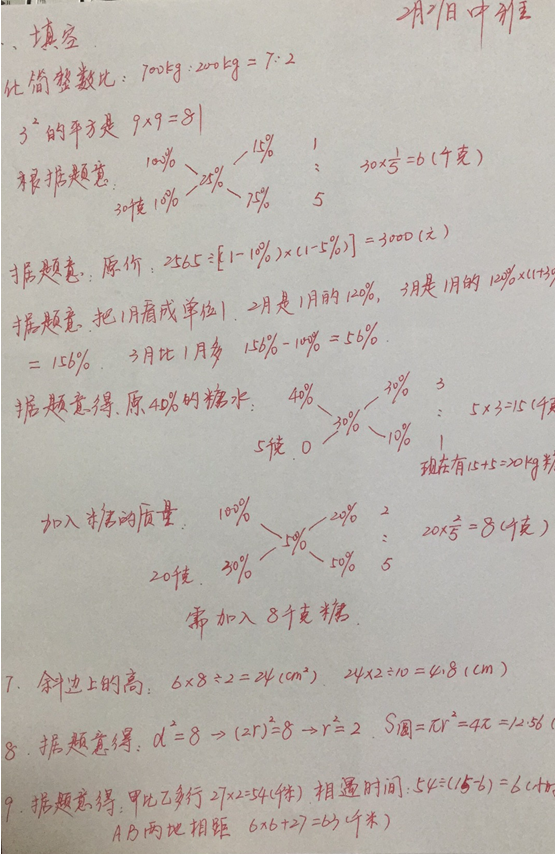 2月21日中班
、填空
化简整数比：700kg：200kg = 7：2
3²的平方是 9×9=81
根据题意： 100% 15% 1
25% ： 30×1/5=6(千克)
30千克 10% 75% 5
据题意：原价：2565÷[(1-10%)×(1-5%)]=3000(元)
据题意，把1月看成单位1，2月是1月的120%，3月是1月的120%×(1+30%
=156%. 3月比1月多 156%-100%=56%.
据题意得，原40%的糖水： 40% 30% 3
30% ： 5×3=15(千克
5千克 0 10% 1
现在有15+5=20kg糖
加入糖的质量： 100% 20% 2
50% ： 20×2/5=8(千克)
20千克. 30% 50% 5
需加入8千克糖.
7. 斜边上的高：6×8÷2=24(cm²) 24×2÷10=4.8(cm)
8. 据题意得：d²=8→(2r)²=8→r²=2. S圆=πr²=4π=12.56(
9. 据题意得：甲比乙多行27×2=54(千米) 相遇时间：54÷(15-6)=6(小时
AB两地相距 6×6+27=63(千米)